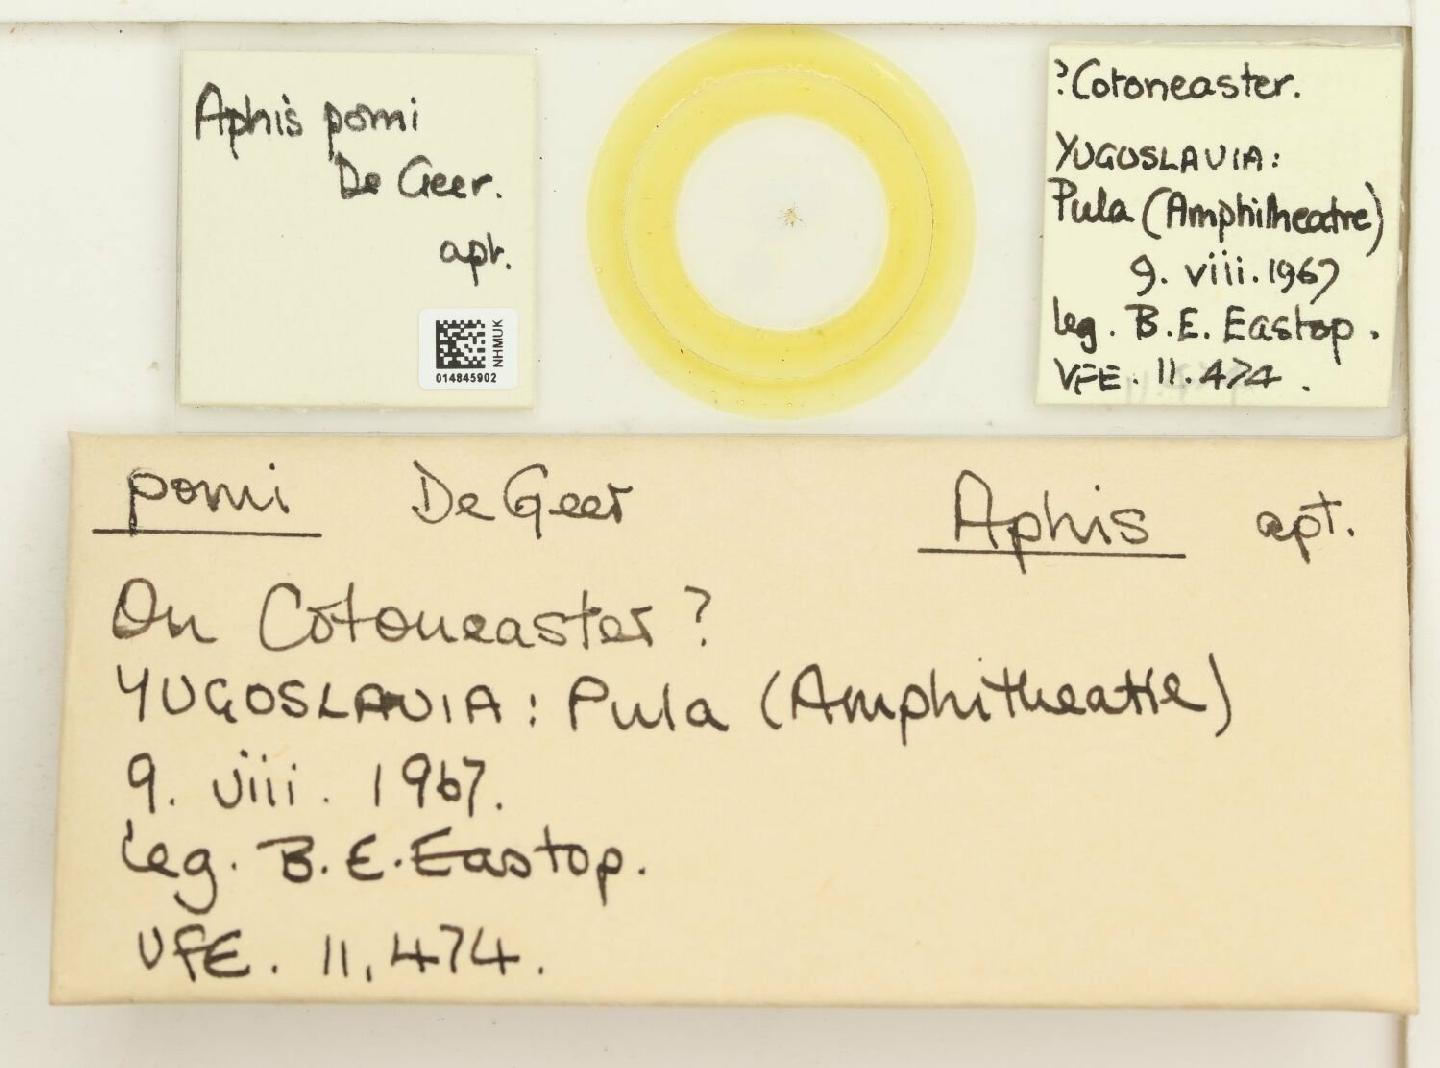 Aphis pomi
De Geer.
apt.
NHMUK
014845902
?Cotoneaster.
YUGOSLAVIA:
Pula (Amphitheatre)
9. viii. 1967
leg. B.E. Eastop.
VFE. 11.474.
pomi De Geer Aphis apt.
On Cotoneaster?
YUGOSLAVIA: Pula (Amphitheatre)
9. viii. 1967.
leg. B.E. Eastop.
VFE. 11,474.